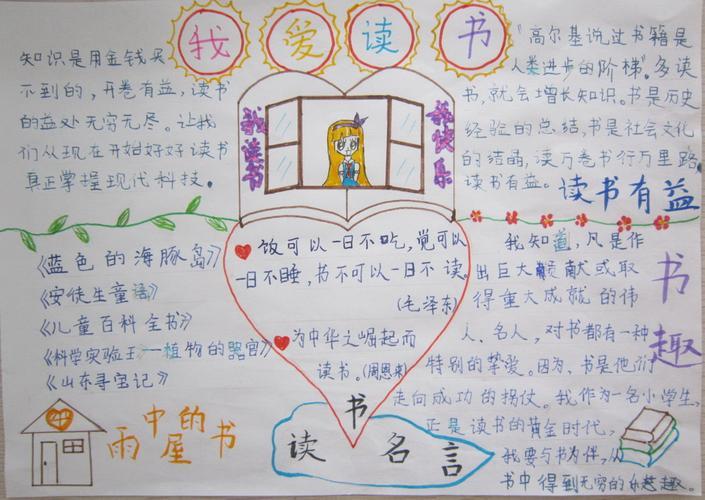 我 爱 读 书
知识是用金钱买
不到的，开卷有益，读书
的益处无穷无尽。让我
们从现在开始好好读书
真正掌握现代科技。
我读书
我快乐
"高尔基说过书籍是
人类进步的阶梯"。多读
书，就会增长知识。书是历史
经验的总结，书是社会文化
的结晶，读万卷书行万里路。
读书有益。
读书有益
《蓝色的海豚岛》
《安徒生童话》
《儿童百科全书》
《科学实验王——植物的器官》
《山东寻宝记》
雨中的书屋
饭可以一日不吃，觉可以
一日不睡，书不可以一日不读。
（毛泽东）
为中华之崛起而
读书。（周恩来）
读书名言
书趣
我知道，凡是作
出巨大贡献或取
得重大成就的伟
人、名人，对书都有一种
特别的挚爱。因为，书是他们
走向成功的拐仗。我作为一名小学生，
正是读书的黄金时代，
我要与书为伴，从
书中得到无穷的乐趣。